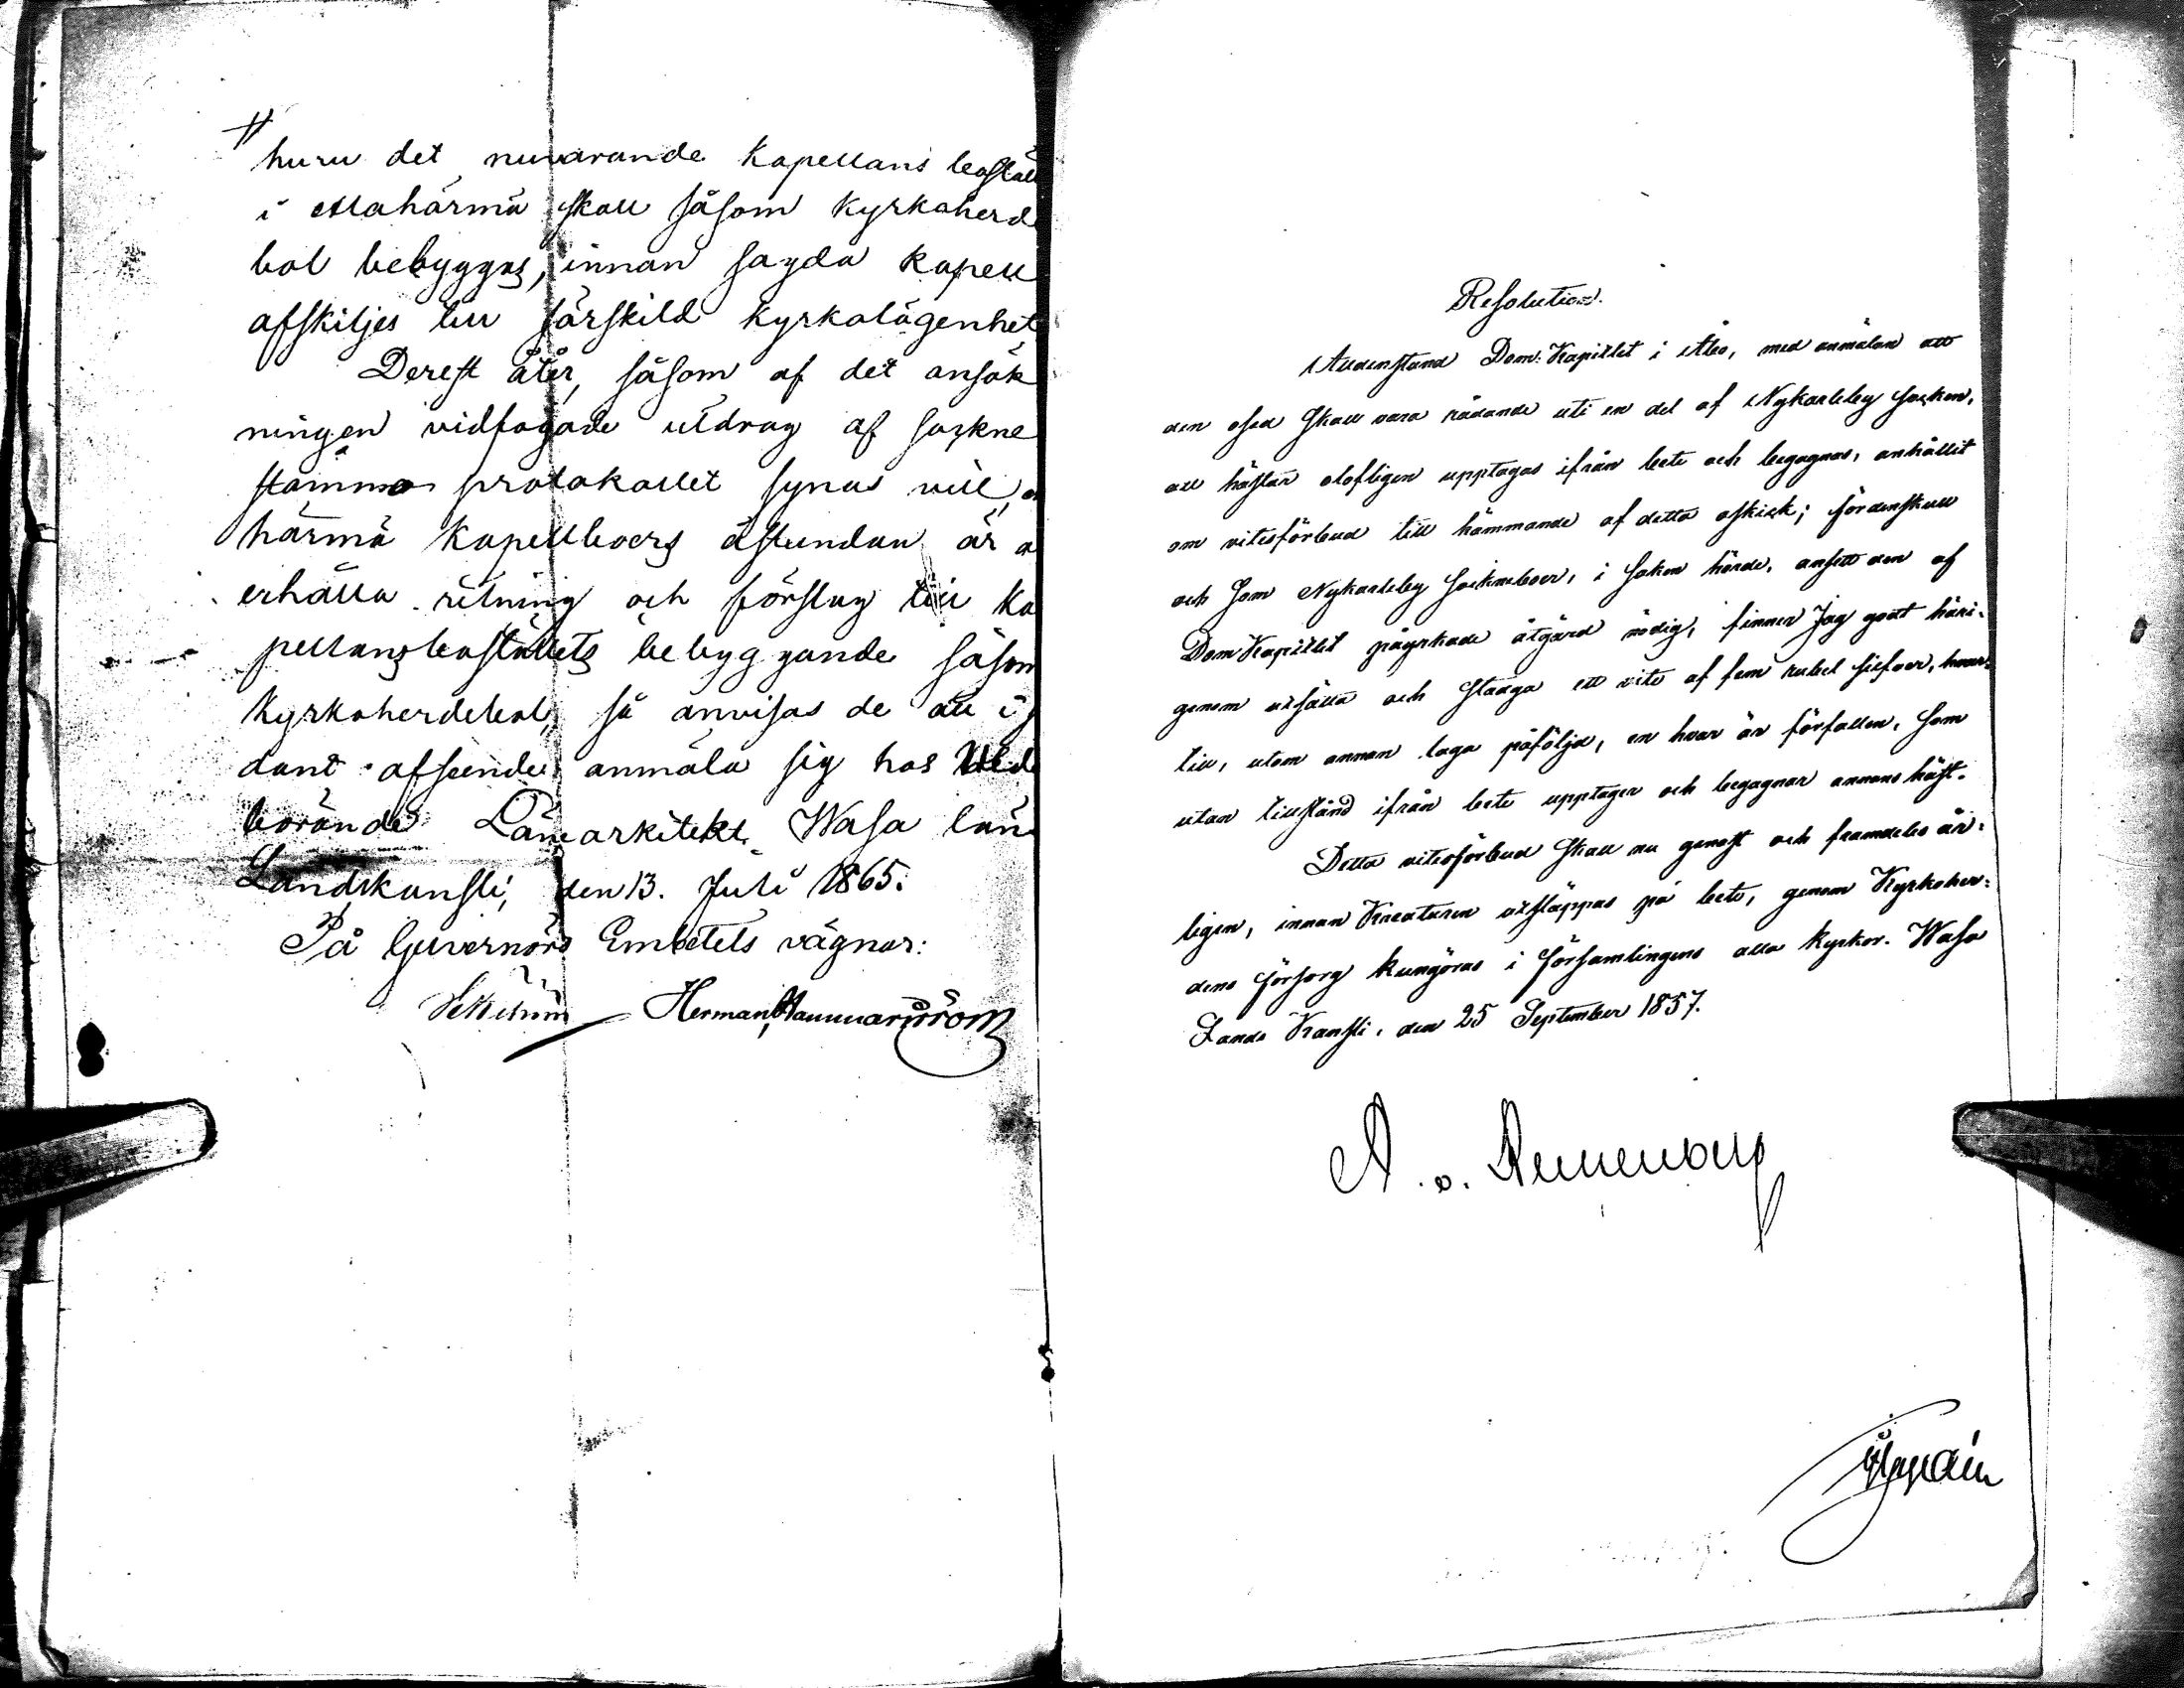 huru det nuvarande Kapellans boställ
i Alahärmä skall såsom Kyrkoherd
bol bebyggas, innan sagda Kapell
afskiljes till särskild Kyrkolägenhet
Derest åter, såsom af det ansök
ningen vidfogade utdrag af sockne
stämmo protokollet synas vill,
härmä Kapellboers åstundan är a
erhålla ritning och förslag till Ka
pellansboställets bebyggande såsom
Kyrkoherdebol, så anvisas de att i s
dant afseende anmäla sig hos Vede
börande Länearkitekt. Wasa läns
Landskansli, den 13. Juli 1865.
På Guvernörs Embetets vägnar:
Herman Hammarström
Resolution.
Aldenstund Dom-Kapitlet i Åbo, med anmälan att
den osed skall vara rådande uti en del af Nykarleby socken,
att hästar olofligen upptagas ifrån bete och begagnas, anhållit
om vitesförbud till hämmande af detta oskick; fördenskull
och som Nykarleby socknebor, i saken hörde, ansett den af
Dom Kapitlet påyrkade åtgärd nödig, finner Jag godt häri-
genom utsätta och stadga ett vite af fem rubel silfver, hvar-
till, utom annan laga påföljd, en hvar är förfallen, som
utan tillstånd ifrån bete upptager och begagnar annans häst.
Detta vitesförbud skall nu genast och framdeles år-
ligen, innan Kreaturen utsläppas på bete, genom Kyrkoher-
dens försorg kungöras i församlingens alla kyrkor. Wasa
Lands Kansli, den 25 September 1857.